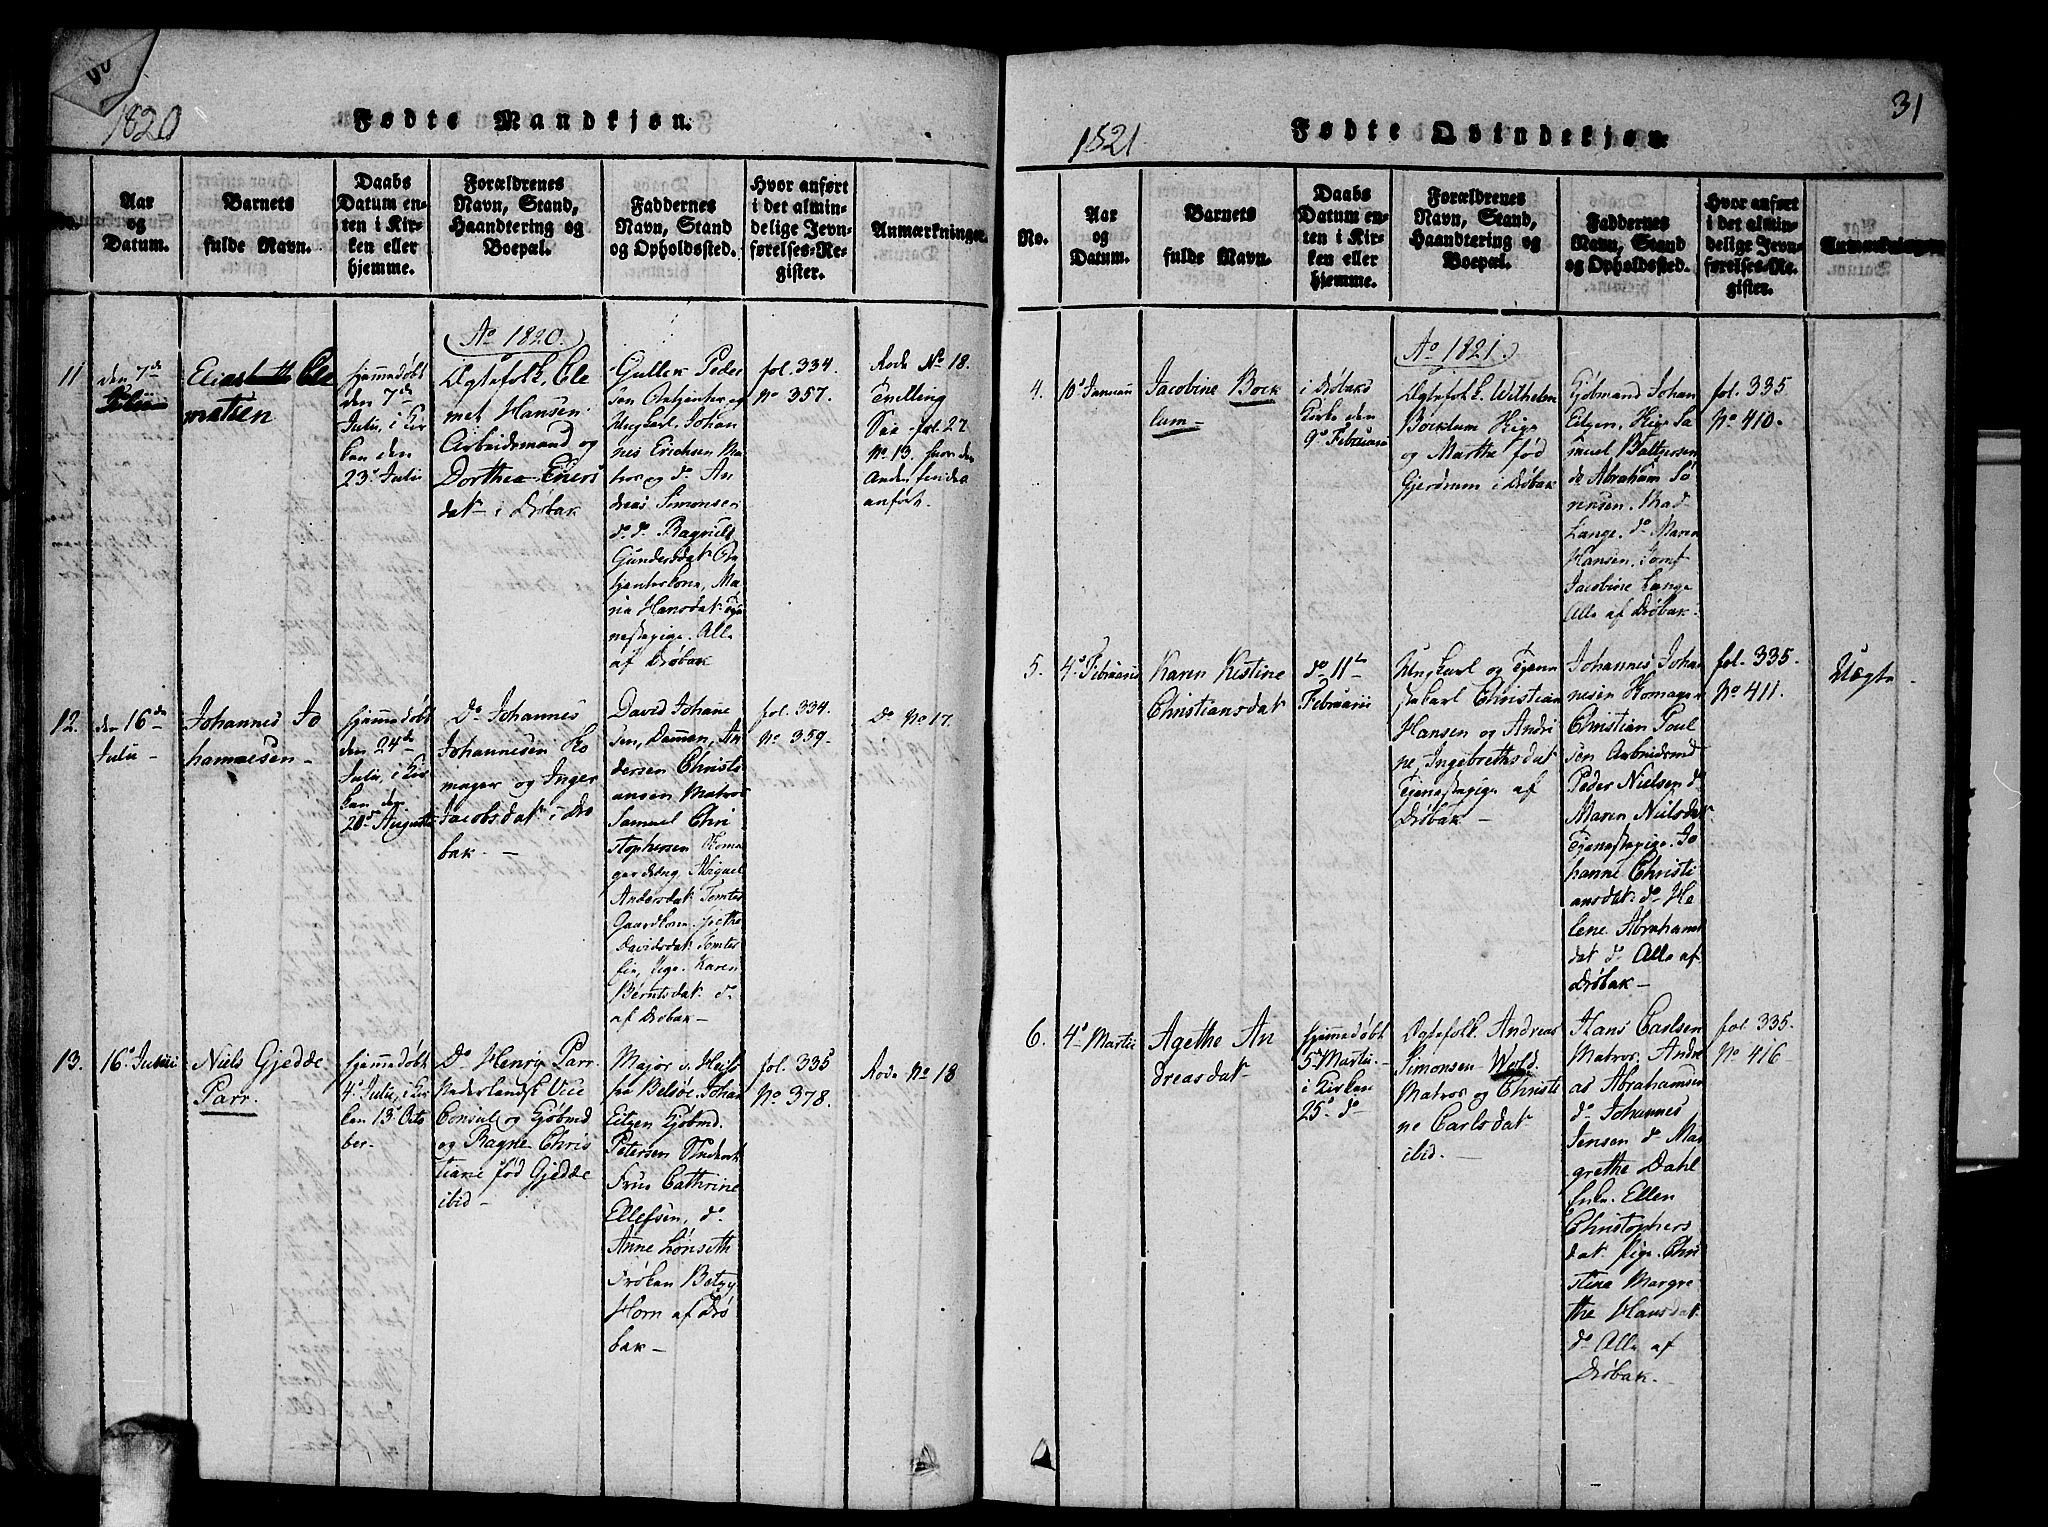 1820
Fødte Mandkjøn.
Aar
og
Datum.
Barnets
fulde Navn.
Daabs
Datum en-
ten i Kir-
ken eller
hjemme.
Forældrenes
Navn, Stand,
Haandtering og
Boepæl.
Faddernes
Navn, Stand
og Opholdssted.
Hvor anført
i det almin-
delige Jevn-
førelses-Re-
gister.
Anmærkninger.
Ao 1820.
11
den 7de
Julii
Clemetsen
hjemmedøbt
den 7de
Julii, i Kir
ken den
23de Julii
Ægtefolk, Cle
met Hansen
Arbeidsmand og
Dorthea Einers
dat i Drøbak
Gullek Peder
sen
Ungkarl, Johan
nes Erichsen Ma
tros og do An
dreas Simonsen
do do Ragnild
Gundersdat
Ma
ria Hansdat Tje
nestepige. Alle
af Drøbak
fol. 334.
No 357.
Rode No 18.
Tvelling
See fol. 27
No 13. hvor den
Anden findes
anført.
12.
den 16de
Julii
Johannes Jo
hannesen
hjemmedøbt
den 24de
Julii, i Kir
ken den
20de Augusti
Do Johannes
Johannesen Ho
mager og Inger
Jacobsdat i Drø
bak.
David Johane
sen, An
dersen Christi
ansen Matros
Samuel Chri
stophersen Homa
gerdreng Abiguel
Andersdat Tomtes
Gaardkone,
Davidsdat Tomtes
Pige. Karen
Berntsdat do
af Drøbak
fol. 334.
No 359.
Do No 17.
13.
16de Junii
Niels Gjedde
Parr.
hjemmedøbt
4de Julii, i Kir
ken 13de Octo
ber.
Do Henry Parr
Nederlandsk Vice
Consul og Kjøbmd
og Ragne Chris
tiane fød Gjedde
ibid
Major v. Huth
fra Belsøe, Johan
Eitzen Kjøbmd.
Petersen
Frue Cathrine
Ellefsen, do
Anne Lønseth
Frøken Betzy
Horn af Drø
bak
fol. 335
No 378.
Rode No 18
31
1821.
Fødte Qvindekjøn
No.
Aar
og
Datum.
Barnets
fulde Navn.
Daabs
Datum en-
ten i Kir-
ken eller
hjemme.
Forældrenes
Navn, Stand,
Haandtering og
Boepæl.
Faddernes
Navn, Stand
og Opholdssted.
Hvor anført
i det almin-
delige Jevn-
førelses-Re-
gister.
Anmærkninger.
Ao 1821.
4.
10de Januari
Jacobine Bock
lum
i Drøbaks
Kirke den
9de Februarii
Ægtefolk Wilhelm
Bocklum
og Marthe fød
Gjerdrum i Drøbak
Kjøbmand Johan
Eitzen, Sa
muel Baltzersen
do Abraham Sø
rensen, Mad.
Lange, do Maren
Hansen, Jomf.
Jacobine Lange
Alle af Drøbak
fol. 335.
No 410.
5.
4de Februarii
Karen Kestine
Christiansdat
do 11te
Februarii
Ungkarl og Tjene
stekarl Christian
Hansen og Andri
ne Ingebrethsdat
Tjenestepige af
Drøbak
Johannes Johan
nesen Homager
Christian Poul
sen Arbeidsmd
Peder Nielsen do
Maren Nielsdat
Tjenestepige. Jo
hanne Christi
ansdat do He
lene Abrahams
dat do Alle af
Drøbak
fol. 335.
No 411.
Uægte
6.
4de Martii
Agethe An
dreasdat
hjemmedøbt
5te Martii
i Kirken
25de do
Ægtefolk Andreas
Simonsen Wold.
Matros og Christi
ne Carlsdat
ibid.
Hans Carlsen
Matros, Andre
as Abrahamsen
do Johannes
Jensen do Mar
grethe Dahl
Enke. Ellen
Christophers
dat Pige. Chri
stine Margre
the Hansdat
do Alle af
Drøbak
fol. 335.
No 416